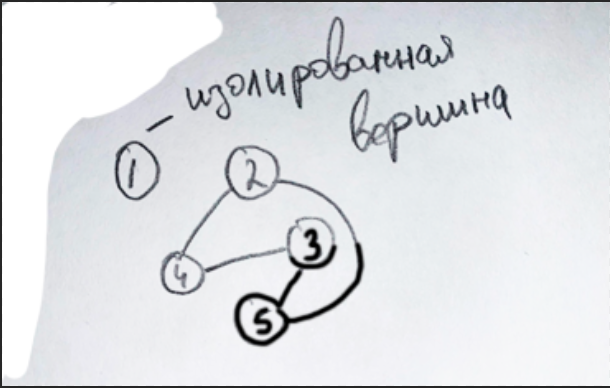 – изолированная
вершина
1
2
3
4
5